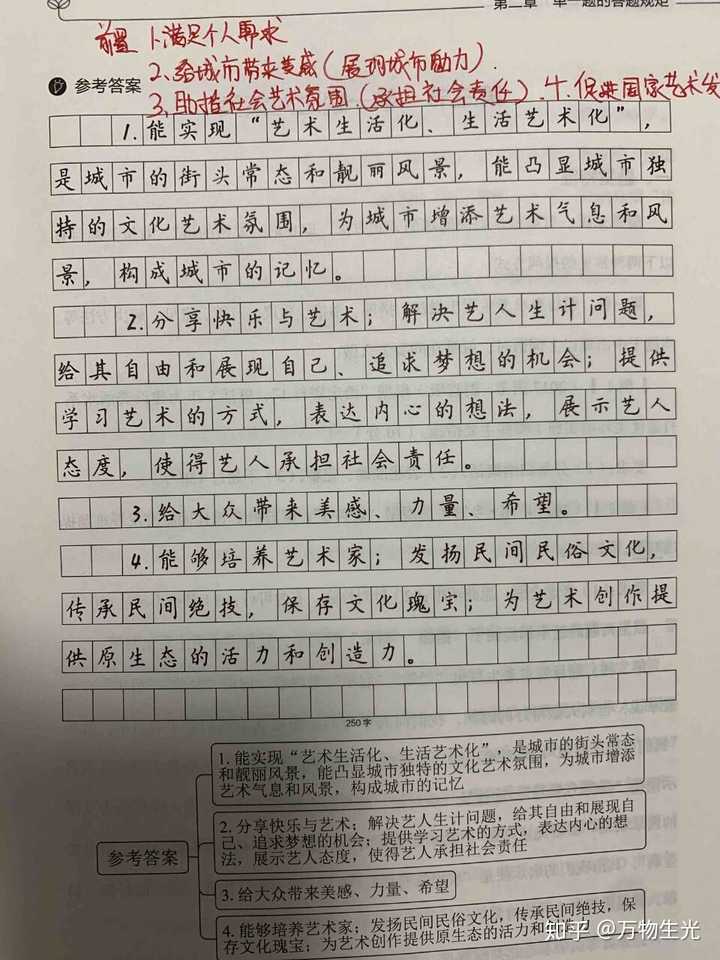 第二章 单一题的答题规定
前置 1.满足个人要求
2.给城市带来美感(展现城市魅力).
参考答案
3.助推社会艺术氛围.(承担社会责任).4.促进国家艺术发
1.能实现“艺术生活化、生活艺术化”,
是城市的街头常态和靓丽风景,能凸显城市独
特的文化艺术氛围,为城市增添艺术气息和风
景,构成城市的记忆。
2.分享快乐与艺术;解决艺人生计问题,
给其自由和展现自己、追求梦想的机会;提供
学习艺术的方式,表达内心的想法,展示艺人
态度,使得艺人承担社会责任。
3.给大众带来美感、力量、希望。
4.能够培养艺术家;发扬民间民俗文化,
传承民间绝技,保存文化瑰宝;为艺术创作提
供原生态的活力和创造力。
250字
参考答案
1.能实现“艺术生活化、生活艺术化”,是城市的街头常态
和靓丽风景,能凸显城市独特的文化艺术氛围,为城市增添
艺术气息和风景,构成城市的记忆
2.分享快乐与艺术;解决艺人生计问题,给其自由和展现自
己、追求梦想的机会;提供学习艺术的方式,表达内心的想
法,展示艺人态度,使得艺人承担社会责任
3.给大众带来美感、力量、希望
4.能够培养艺术家;发扬民间民俗文化,传承民间绝技,保
存文化瑰宝;为艺术创作提供原生态的活力和创造力
知乎 @万物生光